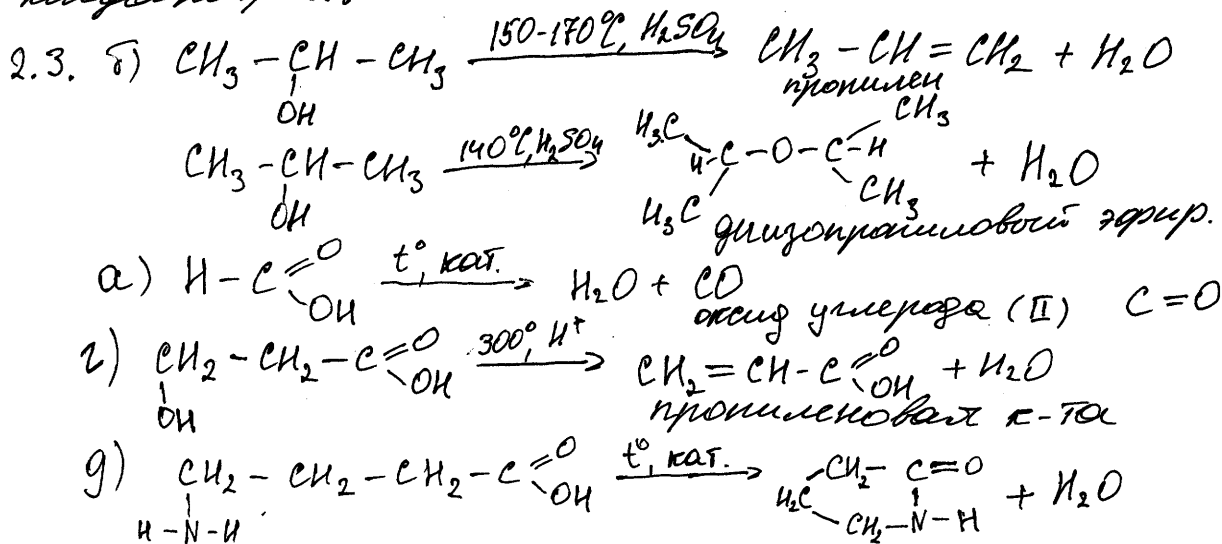 2.3. б) CH₃ – CH – CH₃ 150-170°C, H₂SO₄ → CH₃ – CH = CH₂ + H₂O
OH пропилен
CH₃ – CH – CH₃ 140°C, H₂SO₄ → H₃C H₃C H – C – O – C – H CH₃ CH₃ + H₂O
OH диизопропиловый эфир.
а) H – C = O OH t°, кат. → H₂O + CO
оксид углерода (II) C = O
г) CH₂ – CH₂ – C = O OH 300°, H⁺ → CH₂ = CH – C = O OH + H₂O
OH пропиленовая к-та
д) CH₂ – CH₂ – CH₂ – C = O OH t°, кат. → H₂C CH₂ – C = O CH₂ – N – H + H₂O
H – N – H